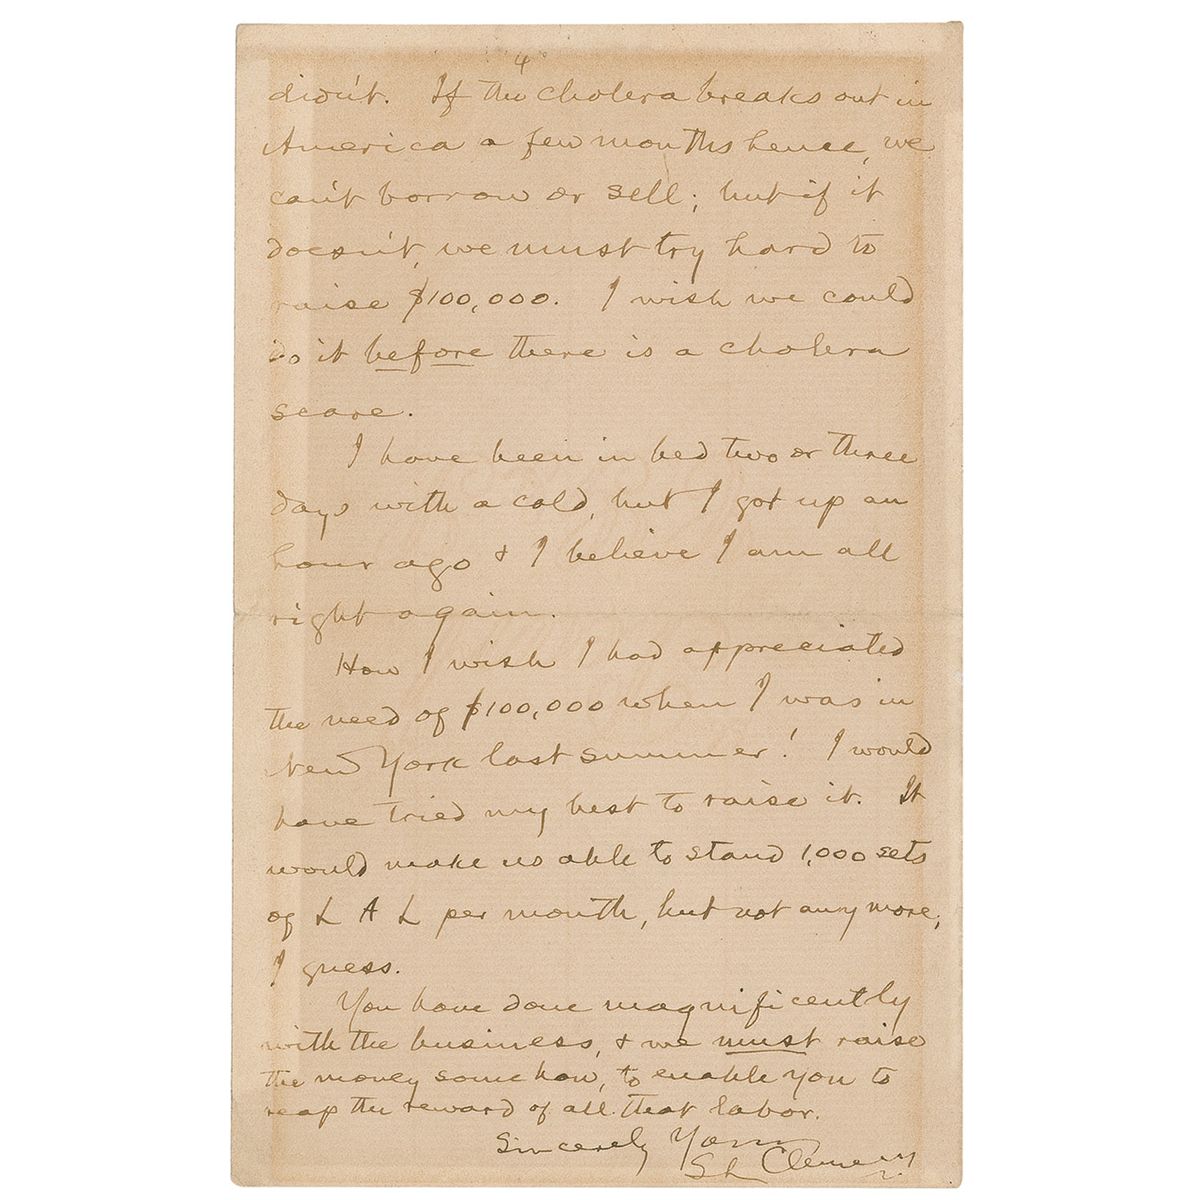 4
didn't. If the cholera breaks out in
America a few months hence, we
can't borrow or sell; but if it
doesn't, we must try hard to
raise $100,000. I wish we could
do it before there is a cholera
scare.
I have been in bed two or three
days with a cold, but I got up an
hour ago & I believe I am all
right again.
How I wish I had appreciated
the need of $100,000 when I was in
New York last summer! I would
have tried my best to raise it. It
would make us able to stand 1,000 sets
of L A L per month, but not any more,
I guess.
You have done magnificently
with the business, & we must raise
the money somehow, to enable you to
reap the reward of all that labor.
Sincerely Yours
SL Clemens